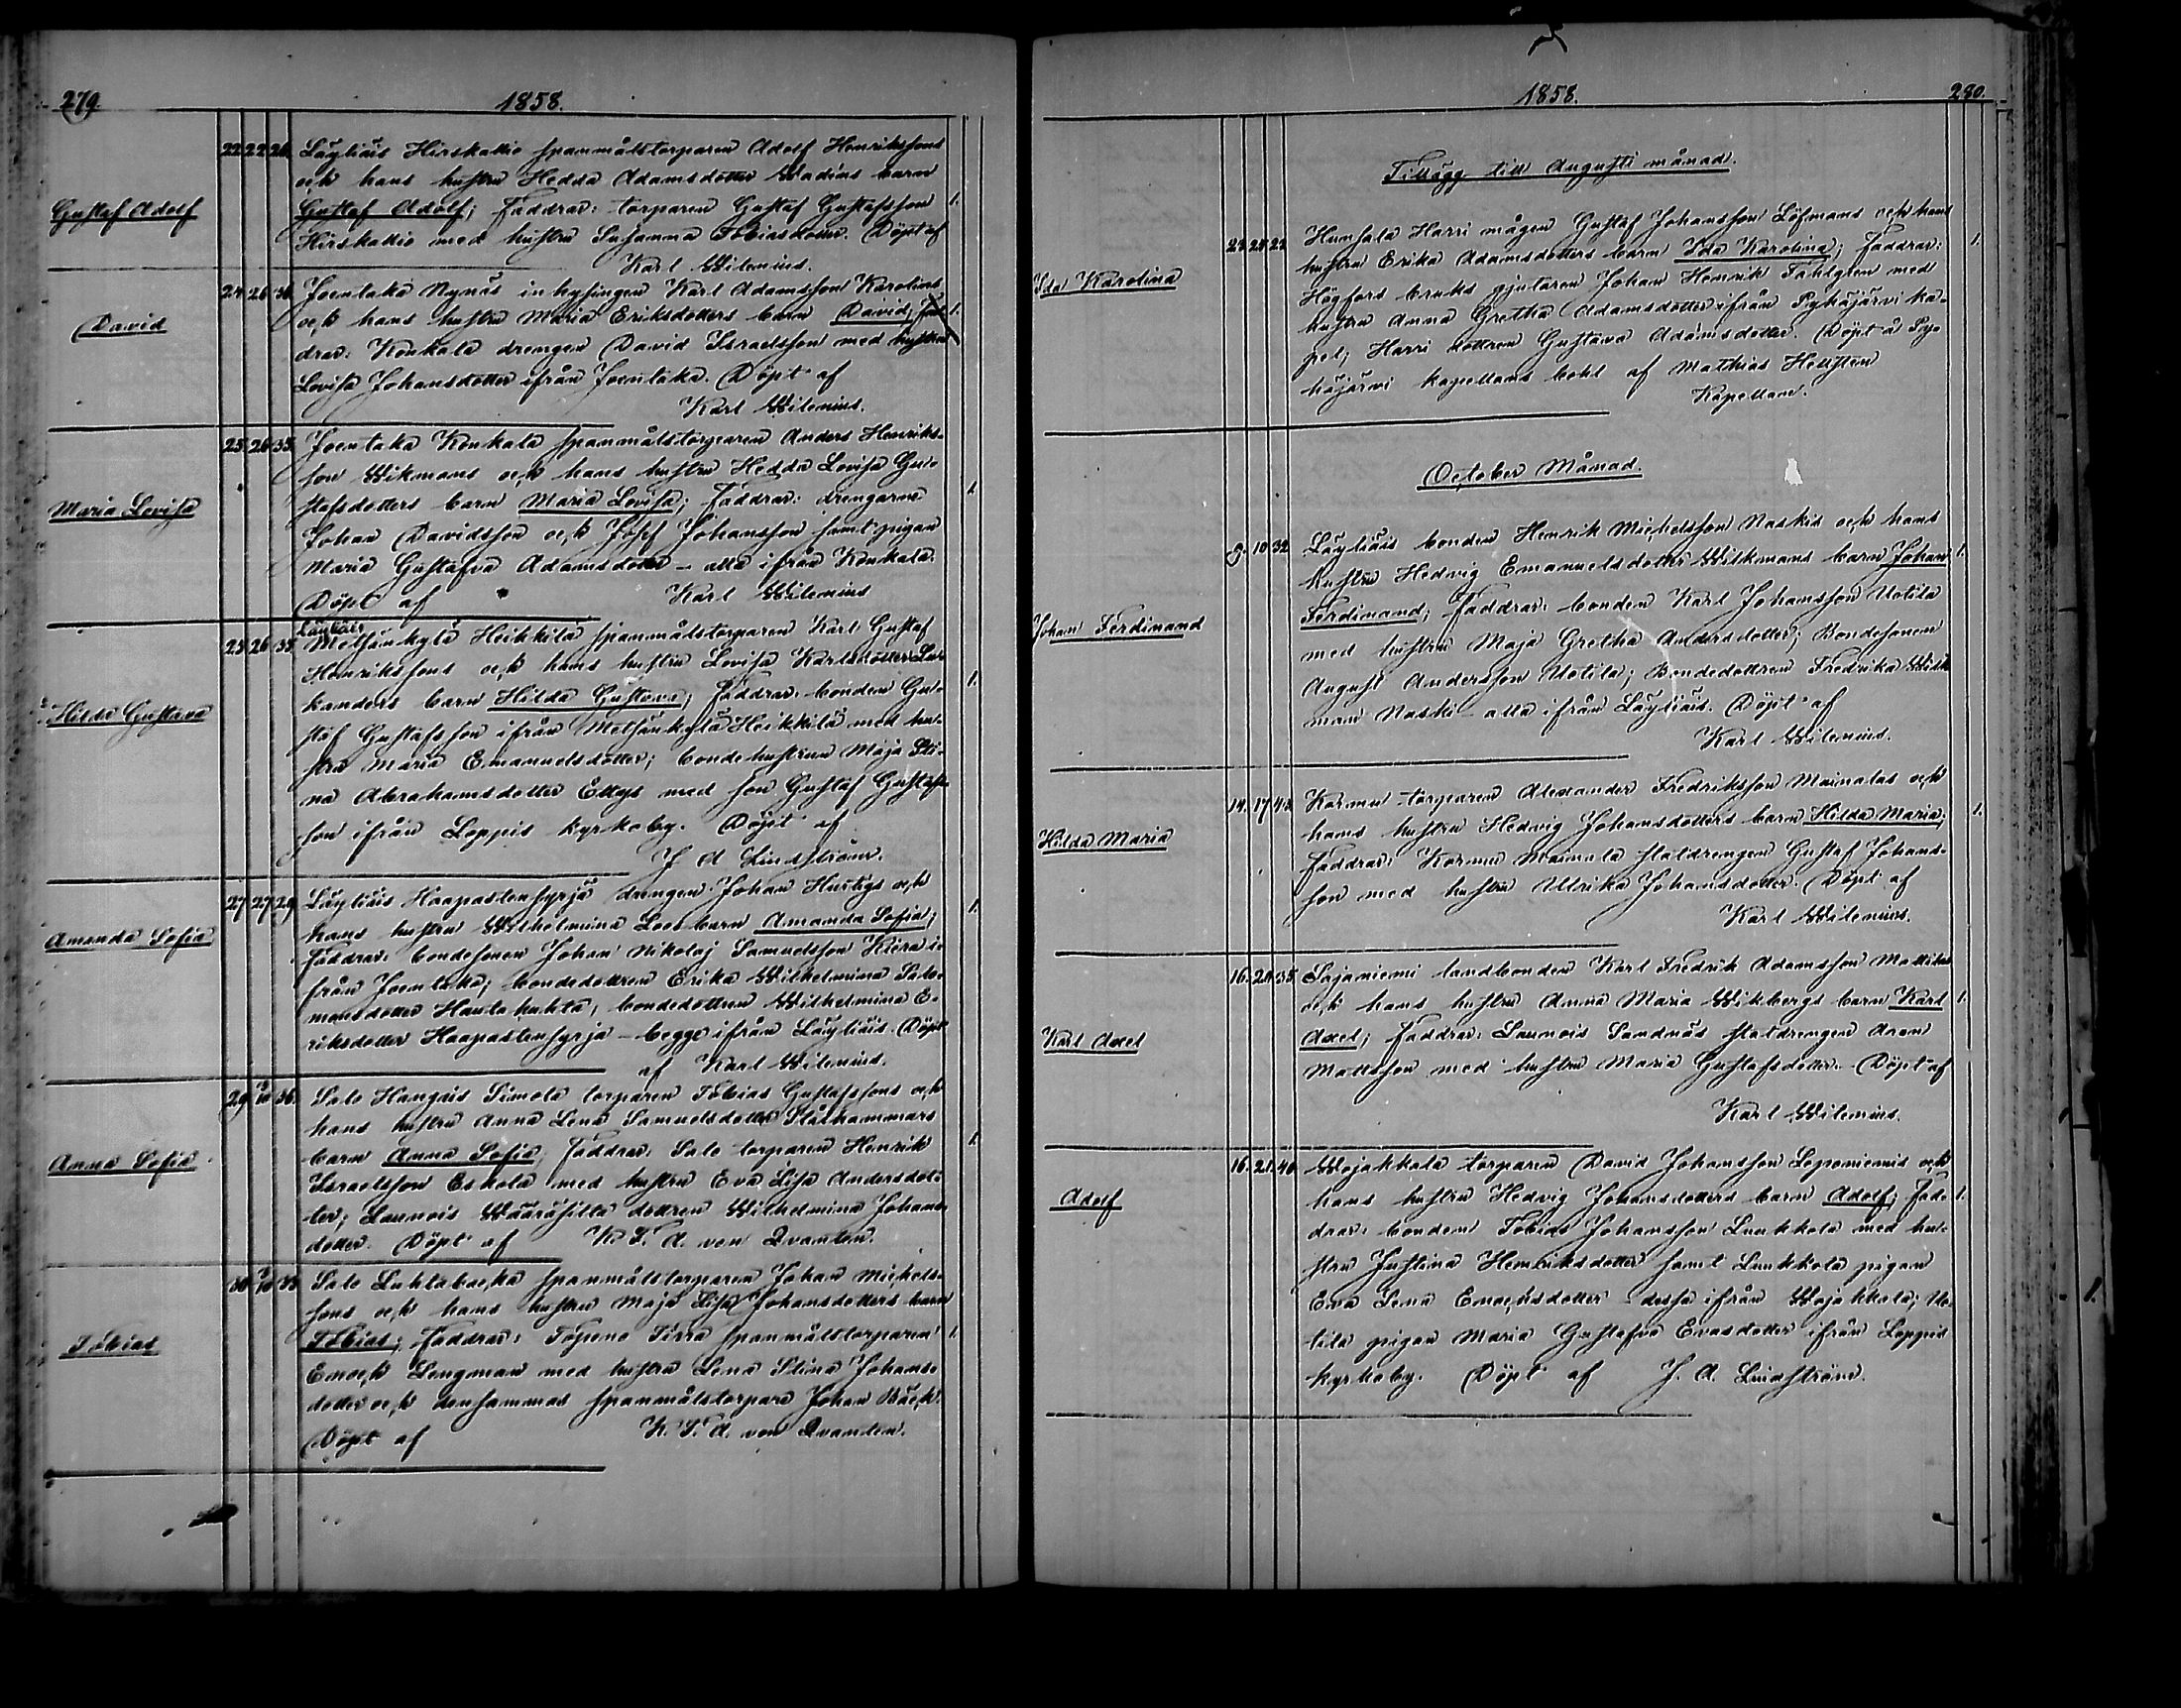 279.
1858.
Gustaf Adolf
22. 22. 26. Läyliäis Hirskallio spanmålstorparen Adolf Henrikssons
och hans hustru Hedda Adamsdotter Wadins barn
Gustaf Adolf; Faddrar: torparen Gustaf Gustafsson 1.
Hirskallio med hustru Susanna Tobiasdotter. Döpt af
Karl Wilenius.
David
24. 26. 30. Joentaka Nynäs inhysingen Karl Adamsson Karolins
och hans hustru Maria Eriksdotters barn David; Fad- 1.
drar: Konkala drengen David Israelsson med hustru
Lovisa Johansdotter ifrån Joentaka. Döpt af
Karl Wilenius.
Maria Lovisa
25. 26. 33. Joentaka Konkala spanmålstorparen Anders Henriks-
son Wikmans och hans hustru Hedda Lovisa Gu-
stafsdotters barn Maria Lovisa; Faddrar: drengarne 1.
Johan Davidsson och Josef Johansson samt pigan
Maria Gustafva Adamsdotter – alla ifrån Konkala.
Döpt af Karl Wilenius
Hilda Gustava
Läyliäis
25. 26. 35. Metsänkylä Heikkilä spanmålstorparen Karl Gustaf
Henrikssons och hans hustru Lovisa Karlsdotter
kanders barn Hilda Gustava; Faddrar: bonden Gu- 1.
staf Gustafsson ifrån Metsänkylä Heikkilä med hu-
stru Maria Emanuelsdotter; bondehustrun Maja Sti-
na Abrahamsdotter med son Gustaf Gustafs-
son ifrån Loppis kyrkoby. Döpt af
J A Lindström.
Amanda Sofia
27. 27. 29. Läyliäis Haapastensyrjä drengen Johan Hurtigs och
hans hustru Wilhelmina Loos barn Amanda Sofia; 1.
Faddrar: bondesonen Johan Nikolaj Samuelsson Kiera i-
från Joentaka; bondedottren Erika Wilhelmina Salo-
monsdotter Hautakuhta; bondedottren Wilhelmina E-
riksdotter Haapastensyrjä – begge ifrån Läyliäis. Döpt
af Karl Wilenius.
Anna Sofia
29. 3/10 36. Salo Hangais Simola torparen Tobias Gustafssons och
hans hustru Anna Lena Samuelsdotter Stålhammars
barn Anna Sofia; Faddrar: Salo torparen Henrik 1.
Israelsson Eskola med hustru Eva Lisa Andersdot-
ter; Launois Wääräsilla dottren Wilhelmina Johans-
dotter. Döpt af K. T. A. von Qvanten.
Tobias
30. 3/10 33. Salo Luhtabacka spanmålstorparen Johan Michels-
sons och hans hustru Maja Lisa Johansdotters barn
Tobias; Faddrar: Topeno Sirra spanmålstorparen 1.
Enoch Lengman med hustru Lena Stina Johans-
dotter och densammas spanmålstorpare Johan Bäck.
Döpt af K. T. A. von Qvanten.
1858.
280.
Tillägg till Augusti månad.
Ida Karolina
Hunsala Harri mågen Gustaf Johansson Löfmans och hans 1.
hustru Erika Adamsdotters barn Ida Karolina; Faddrar:
Högfors bruks gjutaren Johan Henrik Tahlgren med
hustru Anna Gretha Adamsdotter ifrån Pyhäjärvi ka-
pel; Harri dottren Gustava Adamsdotter. Döpt å Py-
häjärvi kapellans bohl af Mathias Hellsten
Kapellan.
October Månad.
Johan Ferdinand
9. 10. 32. Läyliäis bonden Henrik Michelsson Naskis och hans
hustru Hedvig Emanuelsdotter Wilkmans barn Johan 1.
Ferdinand; Faddrar: bonden Karl Johansson Uotila
med hustru Maja Gretha Andersdotter; Bondesonen
August Andersson Uotila; Bondedottren Fredrika Wilk-
man Naski – alla ifrån Läyliäis. Döpt af
Karl Wilenius.
Hilda Maria
14. 17. 43. Kormu torparen Alexander Fredriksson Mainalas och
hans hustru Hedvig Johansdotters barn Hilda Maria; 1.
Faddrar: Kormu Mainala statdrengen Gustaf Johans-
son med hustru Ulrika Johansdotter. Döpt af
Karl Wilenius.
Karl Axel
16. 20. 35. Sajaniemi landbonden Karl Fredrik Adamsson Mattilas
och hans hustru Anna Maria Wikbergs barn Karl 1.
Axel; Faddrar: Launois Sandnäs statdrengen Aron
Mattsson med hustru Maria Gustafsdotter. Döpt af
Karl Wilenius.
Adolf
16. 21. 40. Wojakkala torparen David Johansson Leponiemis och
hans hustru Hedvig Johansdotters barn Adolf; Fad- 1.
drar: bonden Tobias Johansson Luukkola med hu-
stru Justina Henriksdotter samt Luukkola pigan
Eva Lena Enochsdotter – dessa ifrån Wojakkala; Uo-
tila pigan Maria Gustafva Evasdotter ifrån Loppis
kyrkoby. Döpt af J. A. Lindström.
1.